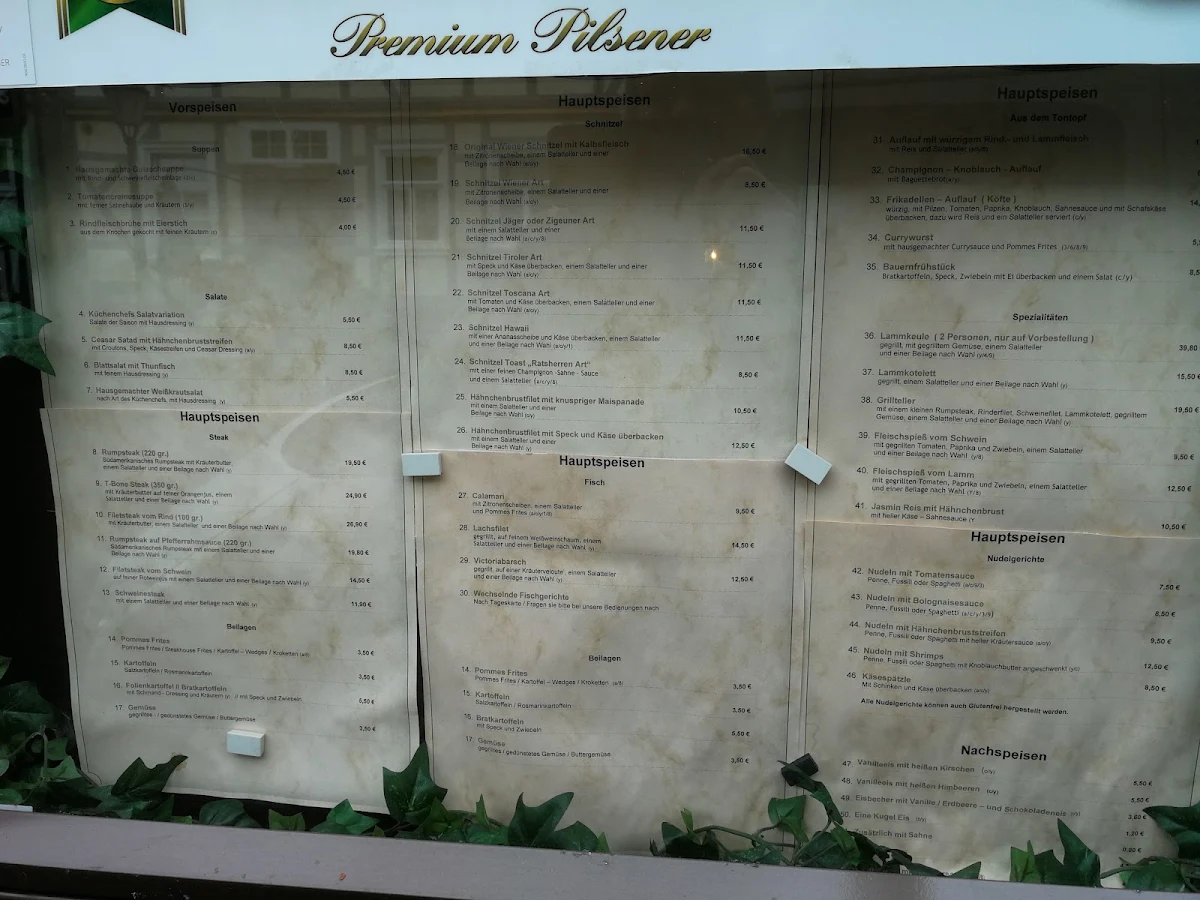 Premium Pilsener
Vorspeisen
Suppen
1. Hausgemachte Gulaschsuppe
mit Rind- und Schweinefleischeinlage
4,50 €
2. Tomatencremesuppe
mit feiner Sahnehaube und Kräutern
4,50 €
3. Rindfleischbrühe mit Eierstich
aus dem Knochen gekocht mit feinen Kräutern
4,00 €
Salate
4. Küchenchefs Salatvariation
Salate der Saison mit Hausdressing (y)
5,50 €
5. Ceasar Salad mit Hähnchenbruststreifen
mit Croutons, Speck, Käsestreifen und Ceasar Dressing
8,50 €
6. Blattsalat mit Thunfisch
mit feinem Hausdressing (y)
8,50 €
7. Hausgemachter Weißkrautsalat
nach Art des Küchenchefs, mit Hausdressing (y)
5,50 €
Hauptspeisen
Steak
8. Rumpsteak (220 gr.)
Südamerikanisches Rumpsteak mit Kräuterbutter,
einem Salatteller und einer Beilage nach Wahl (y)
19,50 €
9. T-Bone Steak (350 gr.)
mit Kräuterbutter auf feiner Orangenjus, einem
Salatteller und einer Beilage nach Wahl (y)
24,90 €
10. Filetsteak vom Rind (180 gr.)
mit Kräuterbutter, einem Salatteller und einer Beilage nach Wahl (y)
26,90 €
11. Rumpsteak auf Pfefferrahmsauce (220 gr.)
Südamerikanisches Rumpsteak mit einem Salatteller und einer
Beilage nach Wahl (y)
19,80 €
12. Filetsteak vom Schwein
auf feiner Rotweinjus mit einem Salatteller und einer Beilage nach Wahl (y)
14,50 €
13. Schweinesteak
mit einem Salatteller und einer Beilage nach Wahl (y)
11,90 €
Beilagen
14. Pommes Frites
Pommes Frites / Steakhouse Frites / Kartoffel – Wedges / Kroketten
3,50 €
15. Kartoffeln
Salzkartoffeln / Rosmarinkartoffeln
3,50 €
16. Folienkartoffel // Bratkartoffeln
mit Schmand - Dressing und Kräutern (y) // mit Speck und Zwiebeln
5,50 €
17. Gemüse
gegrilltes / gedünstetes Gemüse / Buttergemüse
3,50 €
Hauptspeisen
Schnitzel
18. Original Wiener Schnitzel mit Kalbsfleisch
mit Zitronenscheibe, einem Salatteller und einer
Beilage nach Wahl (a/o/y)
16,50 €
19. Schnitzel Wiener Art
mit Zitronenscheibe, einem Salatteller und einer
Beilage nach Wahl (a/o/y)
9,50 €
20. Schnitzel Jäger oder Zigeuner Art
mit einem Salatteller und einer
Beilage nach Wahl (a/c/y/8)
11,50 €
21. Schnitzel Tiroler Art
mit Speck und Käse überbacken, einem Salatteller und einer
Beilage nach Wahl (a/o/y)
11,50 €
22. Schnitzel Toscana Art
mit Tomaten und Käse überbacken, einem Salatteller und einer
Beilage nach Wahl (a/o/y)
11,50 €
23. Schnitzel Hawaii
mit einer Ananasscheibe und Käse überbacken, einem Salatteller
und einer Beilage nach Wahl
11,50 €
24. Schnitzel Toast „Ratsherren Art“
mit einer feinen Champignon -Sahne - Sauce
und einem Salatteller (a/c/y/8)
8,50 €
25. Hähnchenbrustfilet mit knuspriger Maispanade
mit einem Salatteller und einer
Beilage nach Wahl
10,50 €
26. Hähnchenbrustfilet mit Speck und Käse überbacken
mit einem Salatteller und einer
Beilage nach Wahl (y)
12,50 €
Hauptspeisen
Fisch
27. Calamari
mit Zitronenscheiben, einem Salatteller
und Pommes Frites
9,50 €
28. Lachsfilet
gegrillt, auf feinem Weißweinschaum, einem
Salatteller und einer Beilage nach Wahl (y)
14,50 €
29. Victoriabarsch
gegrillt, auf einer Kräuterveloute, einem Salatteller
und einer Beilage nach Wahl (y)
12,50 €
30. Wechselnde Fischgerichte
Nach Tageskarte / Fragen sie bitte bei unsere Bedienungen nach
Beilagen
14. Pommes Frites
Pommes Frites / Kartoffel – Wedges / Kroketten
3,50 €
15. Kartoffeln
Salzkartoffeln / Rosmarinkartoffeln
3,50 €
16. Bratkartoffeln
mit Speck und Zwiebeln
5,50 €
17. Gemüse
gegrilltes / gedünstetes Gemüse / Buttergemüse
3,50 €
Hauptspeisen
Aus dem Tontopf
31. Auflauf mit würzigem Rind– und Lammfleisch
mit Reis und Salatteller
32. Champignon – Knoblauch - Auflauf
mit Baguettebrot
33. Frikadellen – Auflauf ( Köfte )
würzig, mit Pilzen, Tomaten, Paprika, Knoblauch, Sahnesauce und mit Schafskäse
überbacken, dazu wird Reis und ein Salatteller serviert (c/y)
14,
34. Currywurst
mit hausgemachter Currysauce und Pommes Frites (3/6/8/9)
5,
35. Bauernfrühstück
Bratkartoffeln, Speck, Zwiebeln mit Ei überbacken und einem Salat (c/y)
8,5
Spezialitäten
36. Lammkeule ( 2 Personen, nur auf Vorbestellung )
gegrillt, mit gegrilltem Gemüse, einem Salatteller
und einer Beilage nach Wahl
39,80
37. Lammkotelett
gegrillt, einem Salatteller und einer Beilage nach Wahl (y)
15,50 €
38. Grillteller
mit einem kleinen Rumpsteak, Rinderfilet, Schweinefilet, Lammkotelett, gegrilltem
Gemüse, einem Salatteller und einer Beilage nach Wahl (y)
19,50 €
39. Fleischspieß vom Schwein
mit gegrillten Tomaten, Paprika und Zwiebeln, einem Salatteller
und einer Beilage nach Wahl (y/8)
9,50 €
40. Fleischspieß vom Lamm
mit gegrillten Tomaten, Paprika und Zwiebeln, einem Salatteller
und einer Beilage nach Wahl (Y/8)
12,50 €
41. Jasmin Reis mit Hähnchenbrust
mit heller Käse – Sahnesauce (Y
10,50 €
Hauptspeisen
Nudelgerichte
42. Nudeln mit Tomatensauce
Penne, Fussili oder Spaghetti
7,50 €
43. Nudeln mit Bolognaisesauce
Penne, Fussili oder Spaghetti
8,50 €
44. Nudeln mit Hähnchenbruststreifen
Penne, Fussili oder Spaghetti mit heller Kräutersauce
9,50 €
45. Nudeln mit Shrimps
Penne, Fussili oder Spaghetti mit Knoblauchbutter angeschwenkt
12,50 €
46 Käsespätzle
Mit Schinken und Käse überbacken
8,50 €
Alle Nudelgerichte können auch Glutenfrei hergestellt werden.
Nachspeisen
47. Vanilleeis mit heißen Kirschen
5,50 €
48. Vanilleeis mit heißen Himbeeren
5,50 €
49. Eisbecher mit Vanille / Erdbeere – und Schokoladeneis
3,80 €
50. Eine Kugel Eis
1,20 €
Zusätzlich mit Sahne